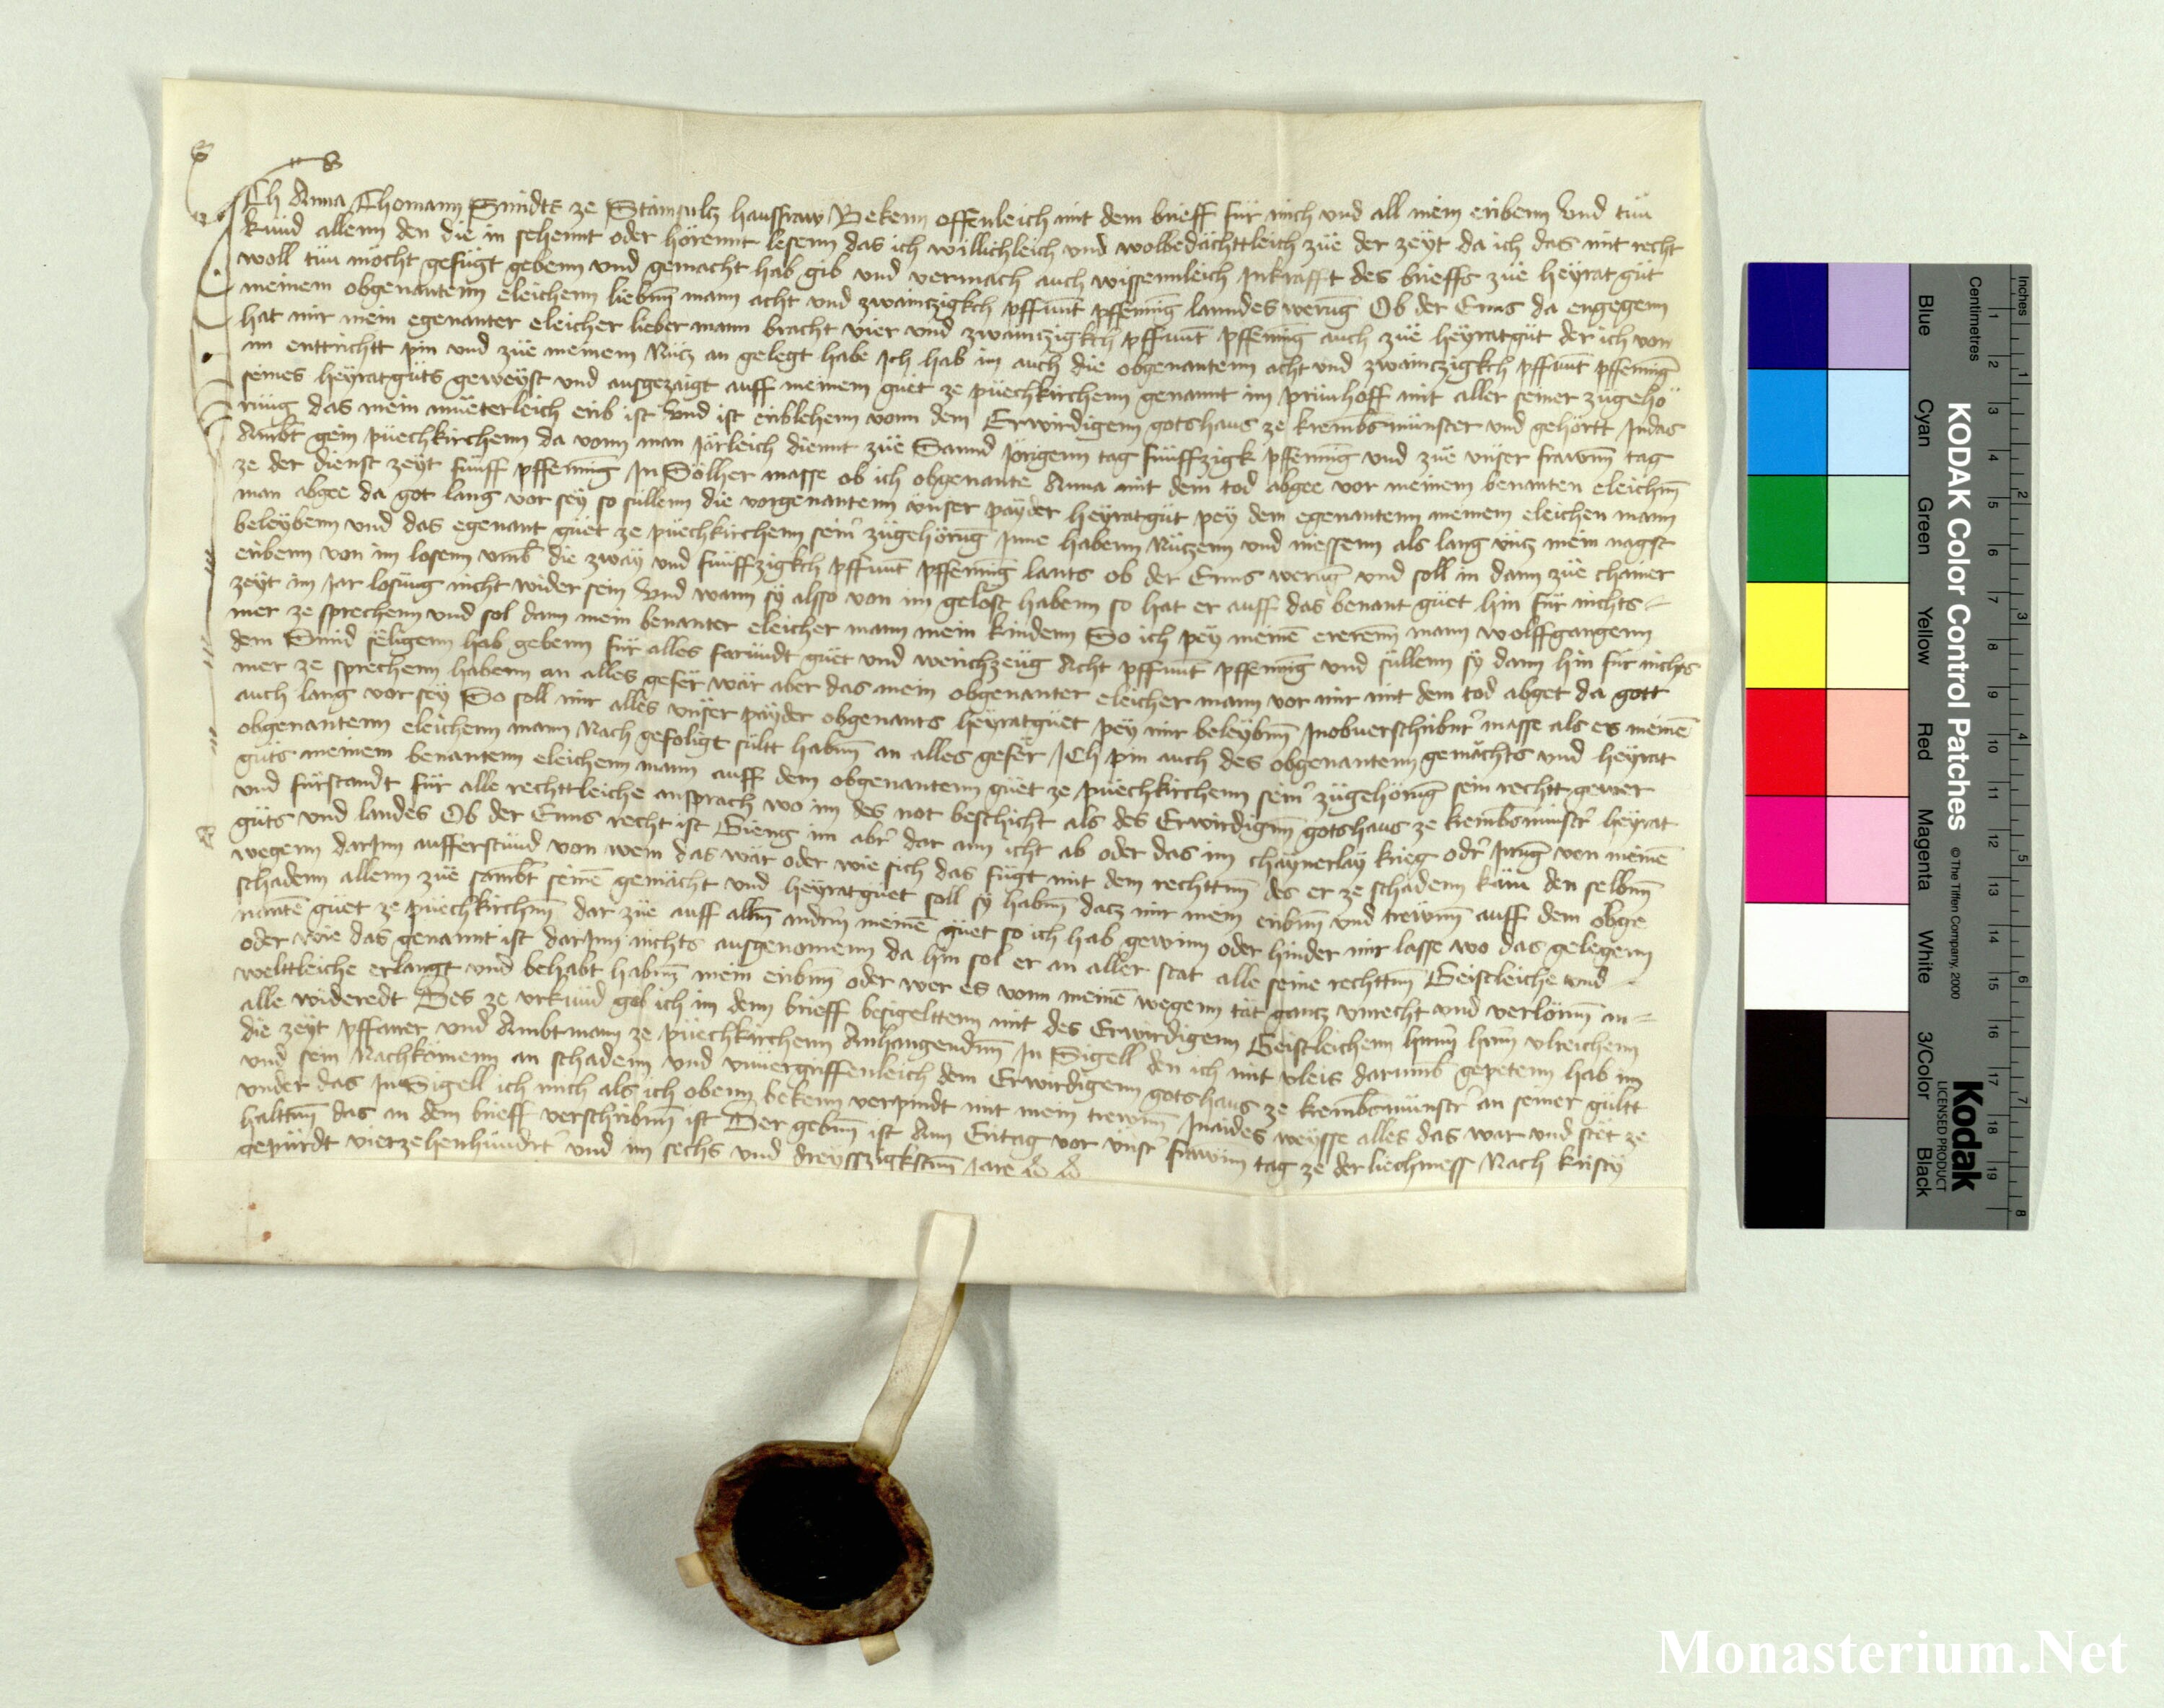 Ich Anna Thomann Smidts ze Stainpulz hausfraw Bekenn offenleich mit dem brieff für mich vnd all mein eribenn Vnd tün
kund allenn den die in sehennt oder hörennt lesenn das ich willichleich vnd wolbedächttleich züe der zeyt da ich das mit recht
woll tün möcht gefügt gebenn vnd gemacht hab gib vnd vermach auch wissennleich Inkrafft des brieffs züe heyrat güt
meinem obgenantenn eleichenn liebm̄ mann acht vnd zwainczigkch pffunt pffennīg lanndes werūg Ob der Enns da engegenn
hat mir mein egenanter eleicher lieber mann bracht vier vnd zwainczigkch pffunt pffennīg auch züe heyratgüt der ich von
im enttrichtt pin vnd züe meinem Nücz an gelegt habe Ich hab im auch die obgenantenn acht vnd zwainczigkch pffunt pffennīg
seines heyratgüts geweyst vnd ausgezaigt auff meinem guet ze püechkirchenn genannt im prünhoff mit aller seiner zügehö
rüng das mein müeterleich erib ist Vnd ist eriblehenn vonn dem Erwirdigenn gotshaus ze krembsmünster vnd gehörtt Indas
Ambt gein püechkirchenn da vonn man Järleich diennt züe Sannd Jörigenn tag fünffzigk pfennīg vnd züe vnser frawm̄ tag
ze der dienst zeyt fünff pffennīg In Sölher masse ob ich obgenante Anna mit dem tod abgee vor meinem benanten eleichm̄
man abgee da got lang vor sey so süllenn die vorgenantenn vnser payder heyratgüt pey dem egenantenn meinem eleichen mann
beleybenn vnd das egenant güet ze püechkirchenn seinr zügehörūg Inne habenn Nüczenn vnd niessenn als lang vncz mein nagst
eribenn von im losenn vmb die zway vnd fünffzigkch pffunt pffennīg lants ob der Enns werūg vnd soll in dann züe chainer
zeyt im Jar losüng nicht wider sein Vnd wann sy alsso von im gelöst habenn so hat er auff das benant güet hin für nichts
mer ze sprechenn vnd sol dann mein benanter eleicher mann mein kindenn So ich pey meinē ererem̄ mann wolffgangenn
dem Smid seligenn hab gebenn für alles faründt güet vnd werichzeüg Acht pffunt pffennīg vnd süllenn sy dann hin für nichts
mer ze sprechenn habenn an alles gefer wär aber das mein obgenanter eleicher mann vor mir mit dem tod abget da gott
auch lang vor sey So soll mir alles vnser payder obgenants heyratgüet pey mir beleybm̄ Inobuerschribnr masse als es meinē
obgenantenn eleichenn mann Nach gefoligt sültt habm̄ an alles gefer Ich pin auch des obgenantenn gemächts vnd heyrat
güts meinem benantenn eleichenn mann auff dem obgenantenn güet ze püechkirchenn seinr zügehörūg sein rechtt gewer
vnd fürstandt für alle rechttleiche ansprach wo im des not beschicht als des Erwirdigm̄ gotshaus ze krembsmünstr heyrat
güts vnd landes Ob der Enns recht ist Gieng im abr dar ann icht ab oder das im chaynerlay krieg odr Irrūg von meinē
wegenn darInn aufferstünd von wem das wär oder wie sich das fügt mit dem rechttm̄ des er ze schadenn käm den selbm̄
schadenn allenn züe sambt seinē gemächt vnd heyratgüet soll sy habm̄ dacz mir mein eribm̄ vnd trewm̄ auff dem obge
nantē güet ze püechkirchm̄ dar züe auff allm̄ andrm̄ meinē güet so ich hab gewinn oder hinder mir lasse wo das gelegenn
oder wie das genannt ist darInn nichts ausgenomenn da hin sol er an aller stat alle seine rechttm̄ Geistleiche vnd
welttleiche erlangt vnd behabt habm̄ mein eribm̄ oder wer es vonn meinē wegenn tät gancz vnrecht vnd verlorm̄ an
alle wideredt Des ze vrkund gib ich im denn brieff besigelttenn mit des Erwirdigenn Geistleichenn hern hern vlreichenn
die zeyt pffarrer vnd Ambtmann ze püechkirchenn Anhangendm̄ In Sigell den ich mit vleis darumb gepetenn hab im
vnd sein Nachkömenn an schadenn vnd vnuergriffenleich dem Erwirdigenn gotshaus ze krembsmünstr an seiner gültt
vnder das InSigell ich mich als ich obenn bekenn verpindt mit mein trewm̄ Inaides weysse alles das war vnd stet ze
halttm̄ das an dem brieff verschribm̄ ist Der gebm̄ ist Ann Eritag vor vnsr frawm̄ tag ze der liechmess Nach kristy
gepürdt vierzehenhundrt vnd im sechs vnd dreysszigkstm̄ Jare
KODAK Color Control Patches © The Tiffen Company, 2000
Kodak
LICENSED PRODUCT
Blue Cyan Green Yellow Red Magenta White 3/Color Black
Inches 1 2 3 4 5 6 7 8
Centimetres 1 2 3 4 5 6 7 8 9 10 11 12 13 14 15 16 17 18 19
Monasterium.Net